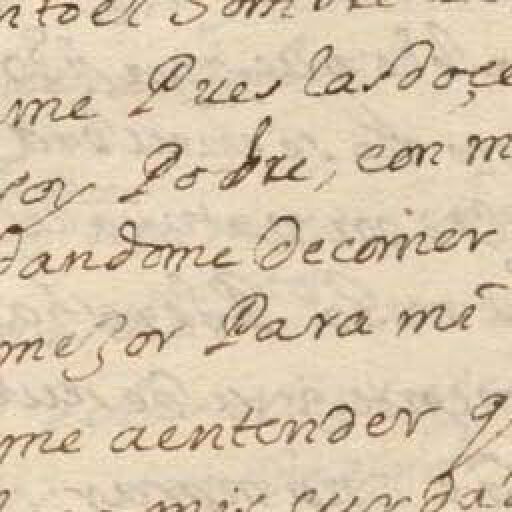 ntoel Sombre
me Pues las doçe
soy Pobre, con m
dandome De comer
mejor Para mi
me a entender q
mis cuyda